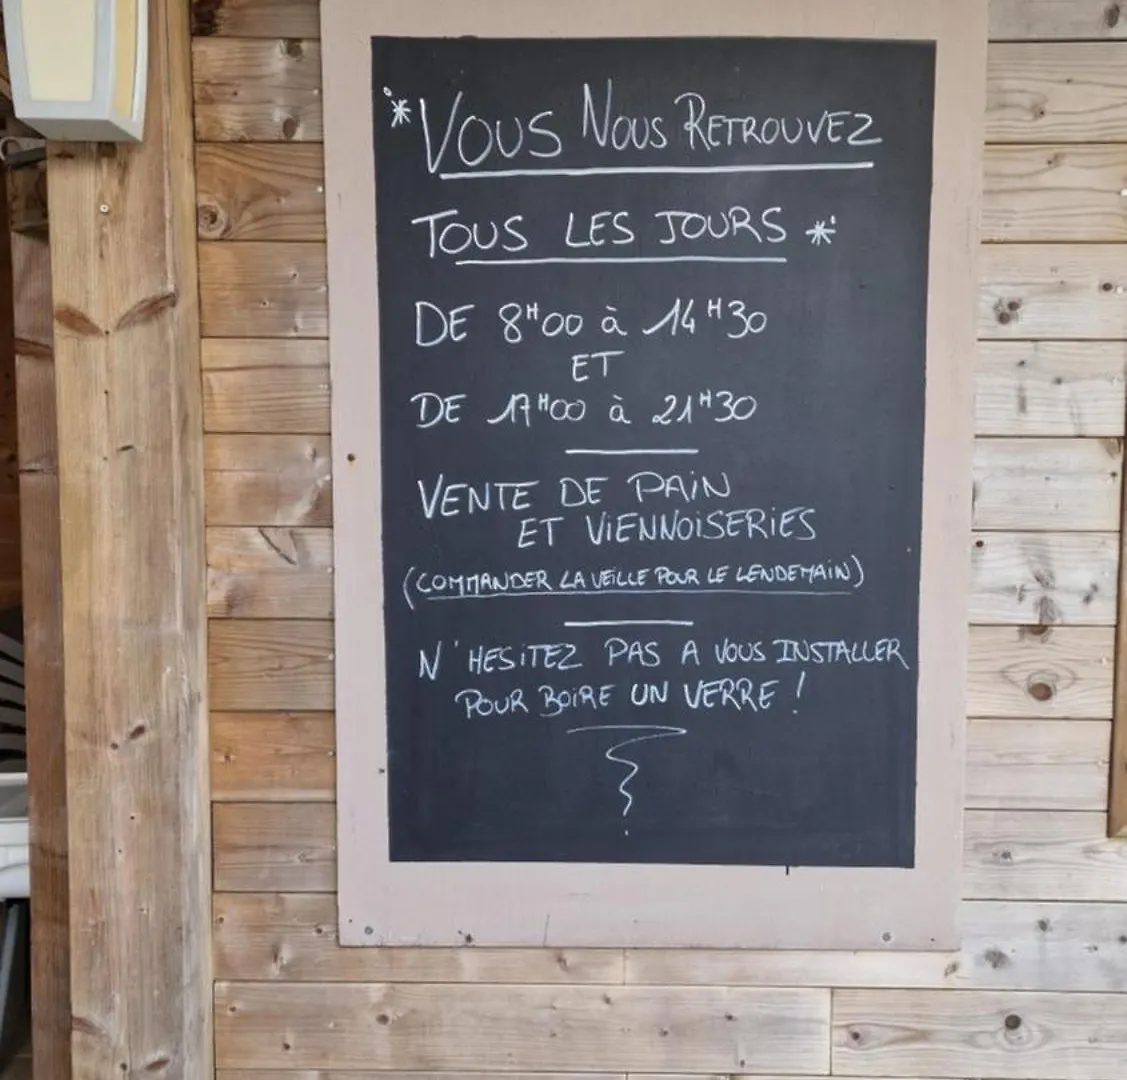 *VOUS NOUS RETROUVEZ
TOUS LES JOURS *
DE 8H00 à 14H30
ET
DE 17H00 à 21H30
VENTE DE PAiN
ET ViENNOiSERiES
(COMMANDER LA VEiLLE POUR LE LENDEMAiN)
N'HESiTEZ PAS A VOUS INSTALLER
POUR BOiRE UN VERRE !